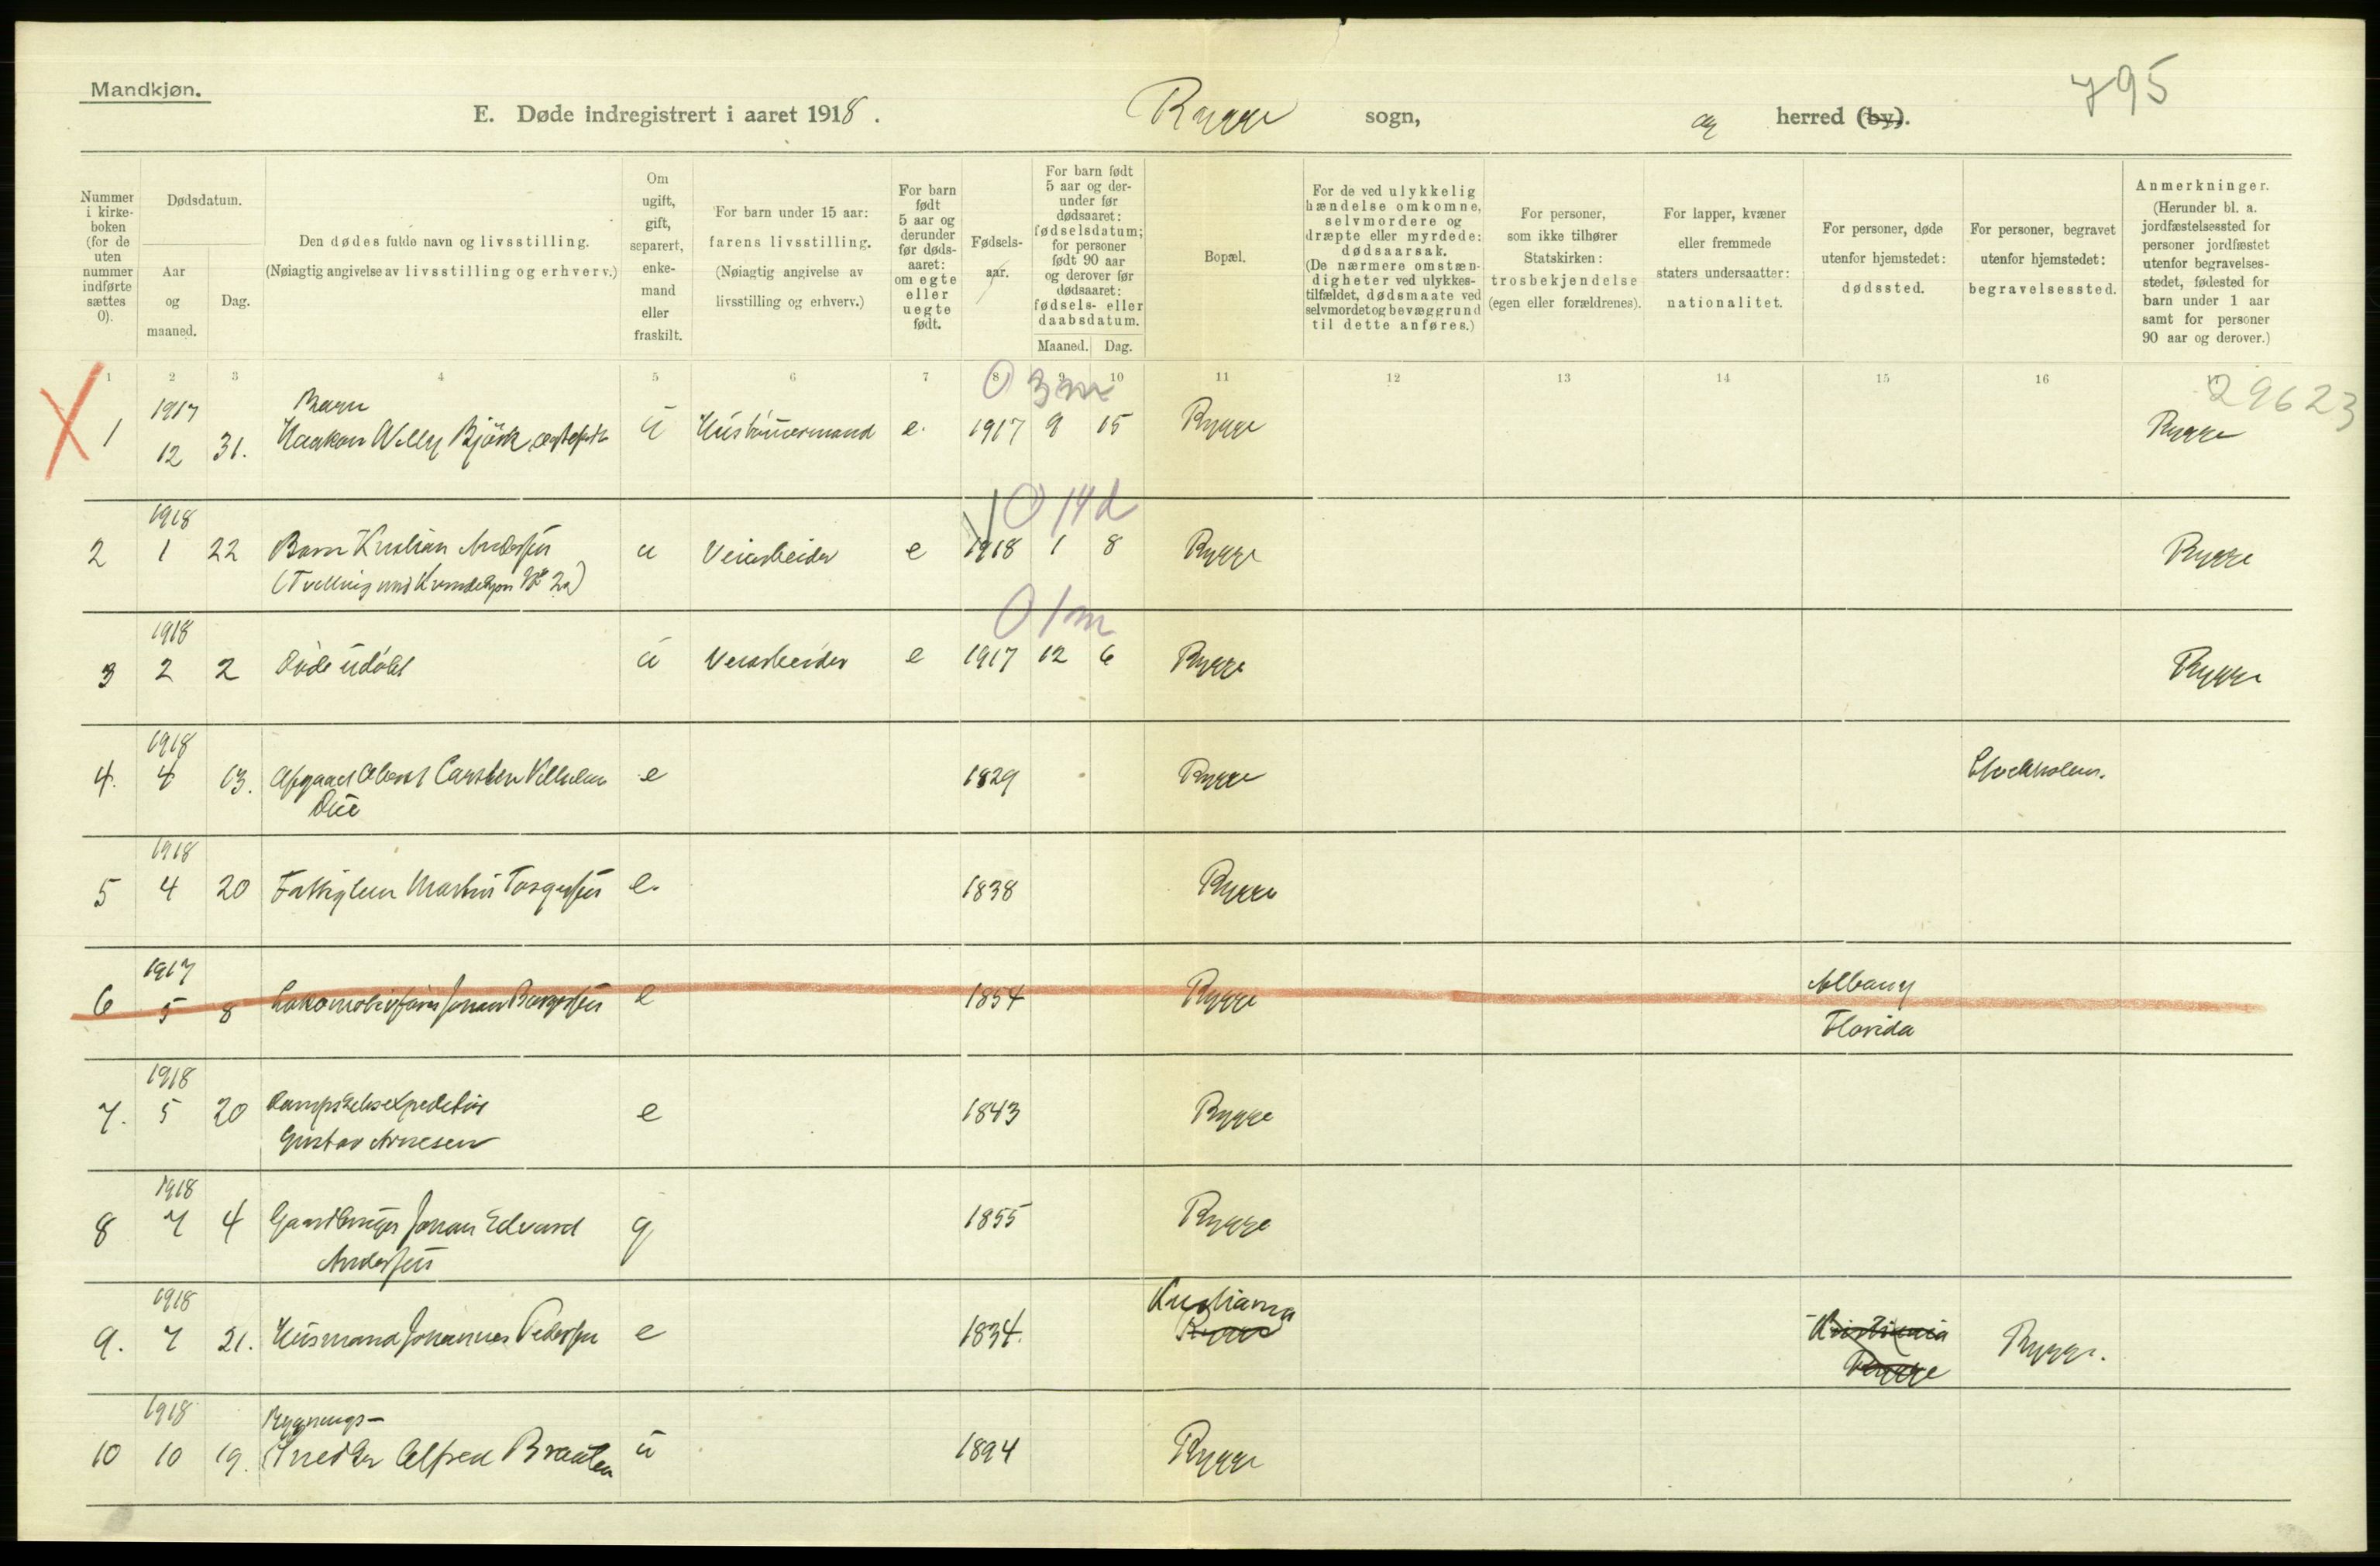 Mandkjøn.
795
E. Døde indregistrert i aaret 1918. Rygge sogn, og herred (by).
Nummer i kirkeboken (for de uten nummer indførte sættes 0).
Dødsdatum.
Aar og maaned.
Dag.
Den dødes fulde navn og livsstilling.
(Nøiagtig angivelse av livsstilling og erhverv.)
Om ugift, gift, separert, enkemand eller fraskilt.
For barn under 15 aar: farens livsstilling.
(Nøiagtig angivelse av livsstilling og erhverv.)
For barn født 5 aar og derunder før dødsaaret: om egte eller uegte født.
Fødselsaar.
For barn født 5 aar og derunder før dødsaaret: fødselsdatum; for personer født 90 aar og derover før dødsaaret: fødsels- eller daabsdatum.
Maaned. Dag.
Bopæl.
For de ved ulykkelig hændelse omkomne, selvmordere og dræpte eller myrdede: dødsaarsak.
(De nærmere omstændigheter ved ulykkestilfældet, dødsmaate ved selvmordet og bevæggrund til dette anføres.)
For personer, som ikke tilhører Statskirken: trosbekjendelse (egen eller forældrenes).
For lapper, kvæner eller fremmede staters undersaatter: nationalitet.
For personer, døde utenfor hjemstedet: dødssted.
For personer, begravet utenfor hjemstedet: begravelsessted.
Anmerkninger.
(Herunder bl. a. jordfæstelsessted for personer jordfæstet utenfor begravelsesstedet, fødested for barn under 1 aar samt for personer 90 aar og derover.)
1 2 3 4 5 6 7 8 9 10 11 12 13 14 15 16 17
0 3m
29623
1917 Barn
1 12 31. Haakon Willy Björk, u e. 1917 9 15 Rygge Rygge
0 14d
1918
2 1 22 Barn Kristian Andersen u Veiarbeider e 1918 1 8 Rygge Rygge
(Tvilling med Kvindekjøn № 2a)
0 1m
1918
3 2 2 Døde udøbt u Veiarbeider e 1917 12 6 Rygge Rygge
1918
4. 4 13. Carsten Vilhelm e 1829 Rygge Stockholm.
Due
1918
5 4 20 Fattiglem Martin e. 1838 Rygge
1917
6 5 8 Lokomotivfører Johan e 1854 Rygge Albany
Florida
1918
7. 5 20 Dampskibsexpeditør e 1843 Rygge
Gustav Arnesen
1918
8 7 4 Gaardbruger Johan Edvard g 1855 Rygge
Andersen
1918 Kristiania
9. 7 21. Husmand Johannes Pedersen e 1834. Rygge Kristiania Rygge.
Rygge
1918 Bygnings-
10 10 19. Snedker Alfred Braaten u 1894 Rygge